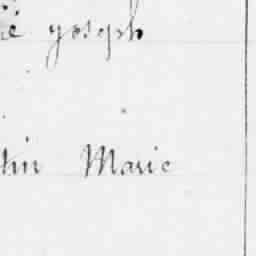 é yoseph
tin Marie